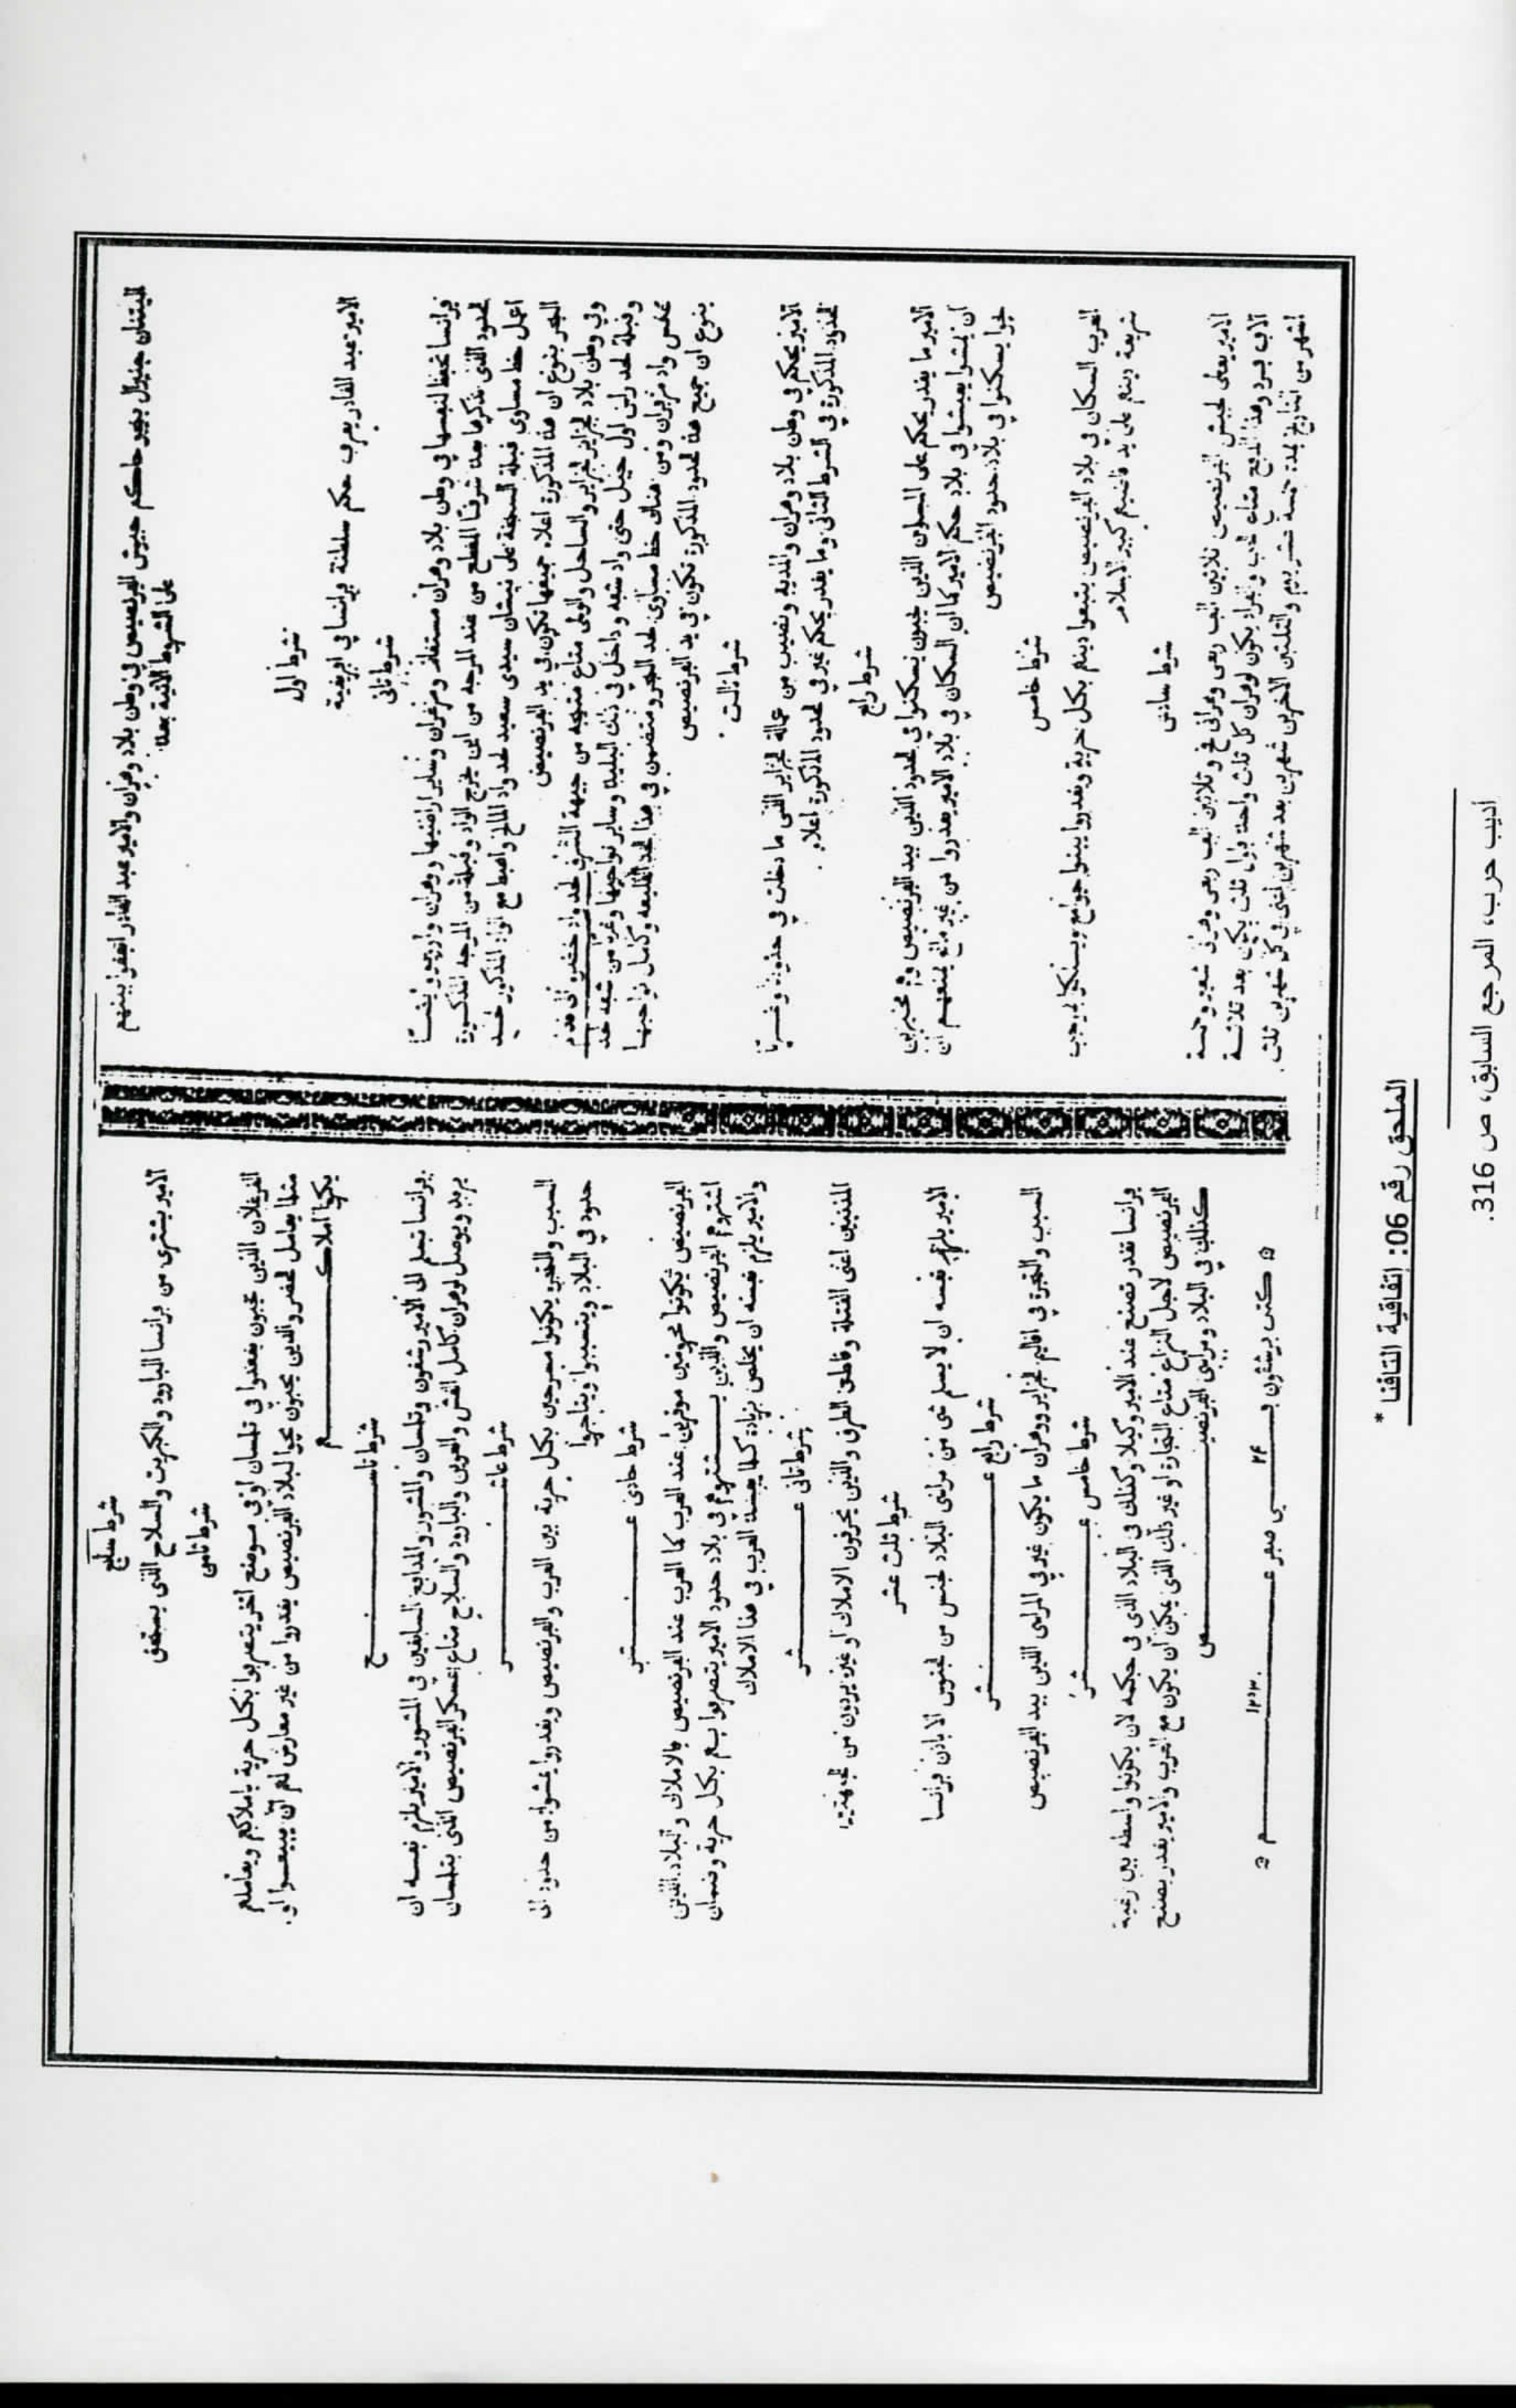 الليتنان جنيرال بيجو حاكم جيوش الفرنصيص في وطن بلاد وهران والامير عبد القادر اتفقوا بينهم
على الشروط الآتية بعده
شرط أول
الامير عبد القادر يعرف حكم سلطنة فرانسا في افريقية
شرط ثاني
فرانسا تحفظ لنفسها في وطن بلاد وهران مستغانم ومزغران وساير اراضيها ووهران وارزيو
لحدود الذي نذكرها شرقا المقطع من عند المرجه من اين يخرج الواد وقبلة من المرجه المذكورة
اعمل خط مساوي قبلة السبخة على نيشان سيدي سعيد لحد واد المالح واهبط مع الواد المذكور لحد
البحر بنوع ان هذه المذكورة اعلاه جميعها تكون في يد الفرنصيص
وفي وطن بلاد الجزاير الجزاير والساحل والوطى متاع متيجه من جيهة الشرق لحد واد خضره الى قدم
وقبلة لحد راس اول جبل حتى واد شفه وداخل في ذلك البليدا وساير نواحيها وغربا من شفه لحد
عكس واد مزفران ومن هناك خط مساوي لحد البحر ومتضمن في هذا الحد القليعه وكامل نواحيها
بنوع ان جميع هذه الحدود المذكورة تكون في يد الفرنصيص
شرط ثالث
الامير يحكم في وطن بلاد وهران والمدية ونصيب من عمالة الجزاير التي ما دخلت في حدود غربا
الحدود المذكورة في الشرط الثاني وما يقدر يحكم غير في الحدود المذكورة اعلاه
شرط رابع
الامير ما يقدر يحكم على المسلمين الذين يحبون يسكنوا في الحدود الذين بيد الفرنصيص وهم مخيرين
ان يمشوا يعيشوا في بلاد حكم الامير كما ان السكان في بلاد الامير يقدروا من غير مانع يمنعهم ان
يجوا يسكنوا في بلاد حدود الفرنصيص
شرط خامس
العرب السكان في بلاد الفرنصيص يتبعوا دينهم بكل حرية ويقدروا يبنوا جوامع ويسلكوا بموجب
شريعة دينهم على يد قاضيهم كبير الاسلام
شرط سادس
الامير يعطي لجيش الفرنصيص ثلاثين الف ربعي وهراني قمح وثلاثين الف ربعي وهراني شعير وخمسة
آلاف فرد وهذا الدفع متاع الحب والفراد يكون لوهران كل ثلث واحده اول ثلث يكون بعد ثلاثة
اشهر من التاريخ بمدة خمسة عشر يوم والثلثين الاخرين شهرين بعد شهرين اعني في كل شهرين ثلث
شرط سابع
الامير يشتري من فرانسا البارود والكبريت والسلاح الذي يستحق
شرط ثامن
القرغلان الذين يحبون يقعدوا في تلمسان او في موضع آخر يتصرفوا بكل حرية باملاكهم ويعاملهم
مثلما يعامل الحضر والذين يحبون يجوا لبلاد الفرنصيص يقدروا من غير معارض لهم ان يبيعوا او
يكروا املاكهم
شرط تاسع
فرانسا تسلم الى الامير رشقون وتلمسان والمشور والمدافع السابقين في المشور والامير يلزم نفسه ان
يرفد ويوصل لوهران كامل القش والعوين والبارود والسلاح متاع عسكر الفرنصيص الذي بتلمسان
شرط عاشر
السبب والتجر يكونوا مسرحين بكل حرية بين العرب والفرنصيص ويقدروا يمشوا من حدود الى
حدود في البلاد ويتسببوا ويتاجروا
شرط حادي عشر
الفرنصيص يكونوا محرومين موقرين عند العرب كما العرب عند الفرنصيص والاملاك والبلاد الذين
اشتروهم الفرنصيص والذين يشتروهم في بلاد حدود الامير يتصرفوا بهم بكل حرية وضمان
والامير يلزم نفسه ان يخلص بزيادة كلما يفسده العرب في هذا الاملاك
شرط ثاني عشر
المذنبين اعني القتلة وقاطع الطرق والذين يحرقون الاملاك او غيره يردون من الجهتين
شرط ثلث عشر
الامير يلزم نفسه ان لا يسلم شي من مراسي البلاد لجنس من الجنوس الا باذن فرانسا
شرط رابع عشر
السبب والتجرة في اقاليم الجزاير ووهران ما يكون غير في المراسي الذين بيد الفرنصيص
شرط خامس عشر
فرانسا تقدر تصنع عند الامير وكيلا وكذلك في البلاد الذي في حكمه لان يكونوا واسطه بين رعية
الفرنصيص لاجل النزاع متاع التجارة او غير ذلك الذي يمكن ان يكون مع العرب والامير يقدر يصنع
كذلك في البلاد ومراسي الفرنصيص
كتب برشقون في ٢٤ صفر عم ١٢٥٣
الملحق رقم 06: إتفاقية التافنا *
أديب حرب، المرجع السابق، ص 316.